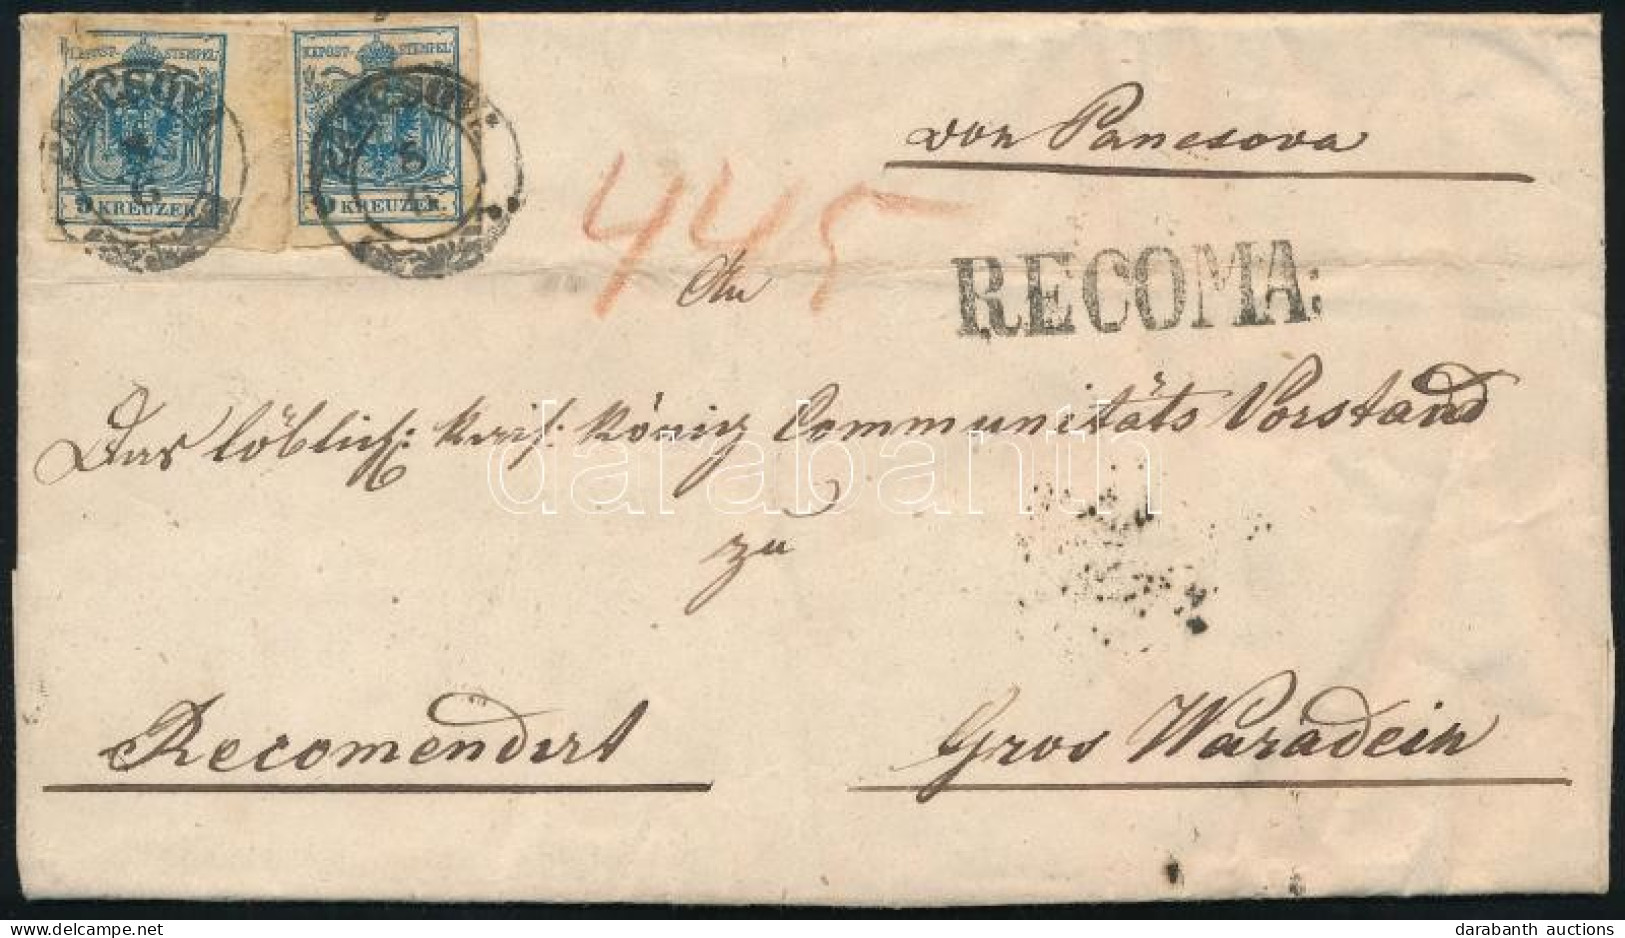 K.K.POST-STEMPEL K.K.POST-STEMPEL
PANCSOVA PANCSOVA
6 5
9 KREUZER. 9 KREUZER.
von Pancsova
445
RECOMA:
An
Das löblich: kais: König Communitäts Vorstand
darabanth
zu
Recomendirt Gros Waradein
darabanth auctions